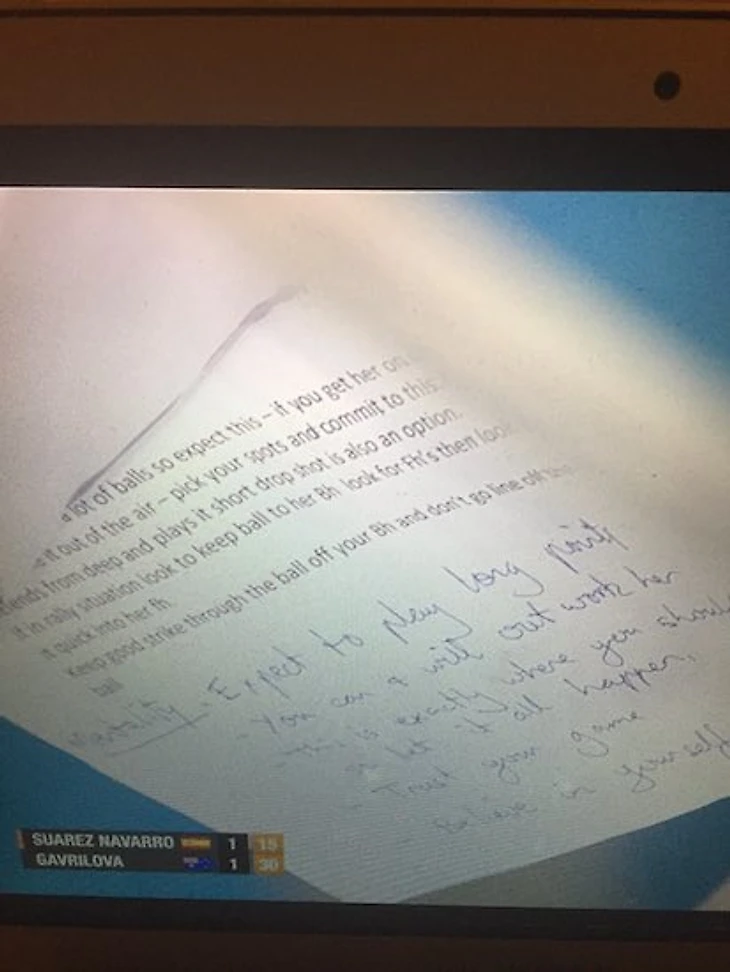 a lot of balls so expect this – if you get her on
it out of the air – pick your spots and commit to this.
from deep and plays it short drop shot is also an option.
it in rally situation look to keep ball to her Bh look for Fh's then
it quick into her fh.
Keep good strike through the ball off your Bh and don't go line off
ball
Mentality - Expect to play long points
- You can & will out work her
- This is exactly where you should
so let it all happen.
- Trust your game
Believe in yourself
SUAREZ NAVARRO 1 15
GAVRILOVA 1 30